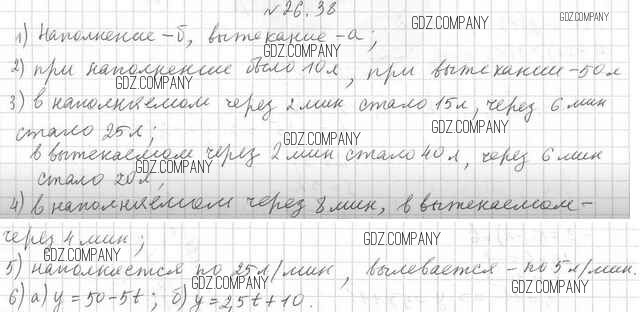 № 26.38
GDZ.COMPANY
1) Наполнение – б, вытекание – а;
GDZ.COMPANY
2) при наполнении было 10л, при вытекании – 50л
GDZ.COMPANY GDZ.COMPANY
3) в наполняемом через 2 мин стало 15л, через 6 мин
стало 25л;
GDZ.COMPANY GDZ.COMPANY
в вытекаемом через 2 мин стало 40л, через 6 мин
GDZ.COMPANY
стало 20л;
4) в наполняемом через 8 мин, в вытекаемом –
через 4 мин;
GDZ.COMPANY
GDZ.COMPANY
5) наполняется по 25л/мин, вылевается – по 5л/мин.
GDZ.COMPANY GDZ.COMPANY
6) а) y = 50 – 5t; б) y = 2,5t + 10.